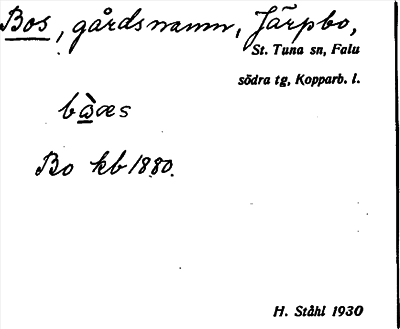 Bos, gårdsnamn, Järpbo,
St. Tuna sn, Falu
södra tg, Kopparb. l.
Bo kb 1880.
H. Ståhl 1930